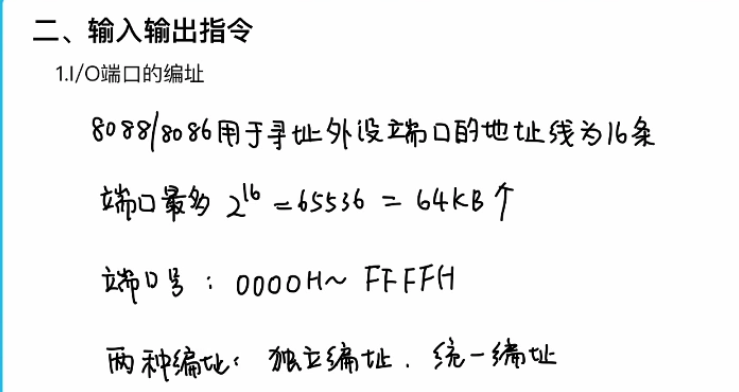 二、输入输出指令
1.I/O端口的编址
8088/8086用于寻址外设端口的地址线为16条
端口最多 2^16 = 65536 = 64KB个
端口号：0000H~FFFFH
两种编址：独立编址．统一编址